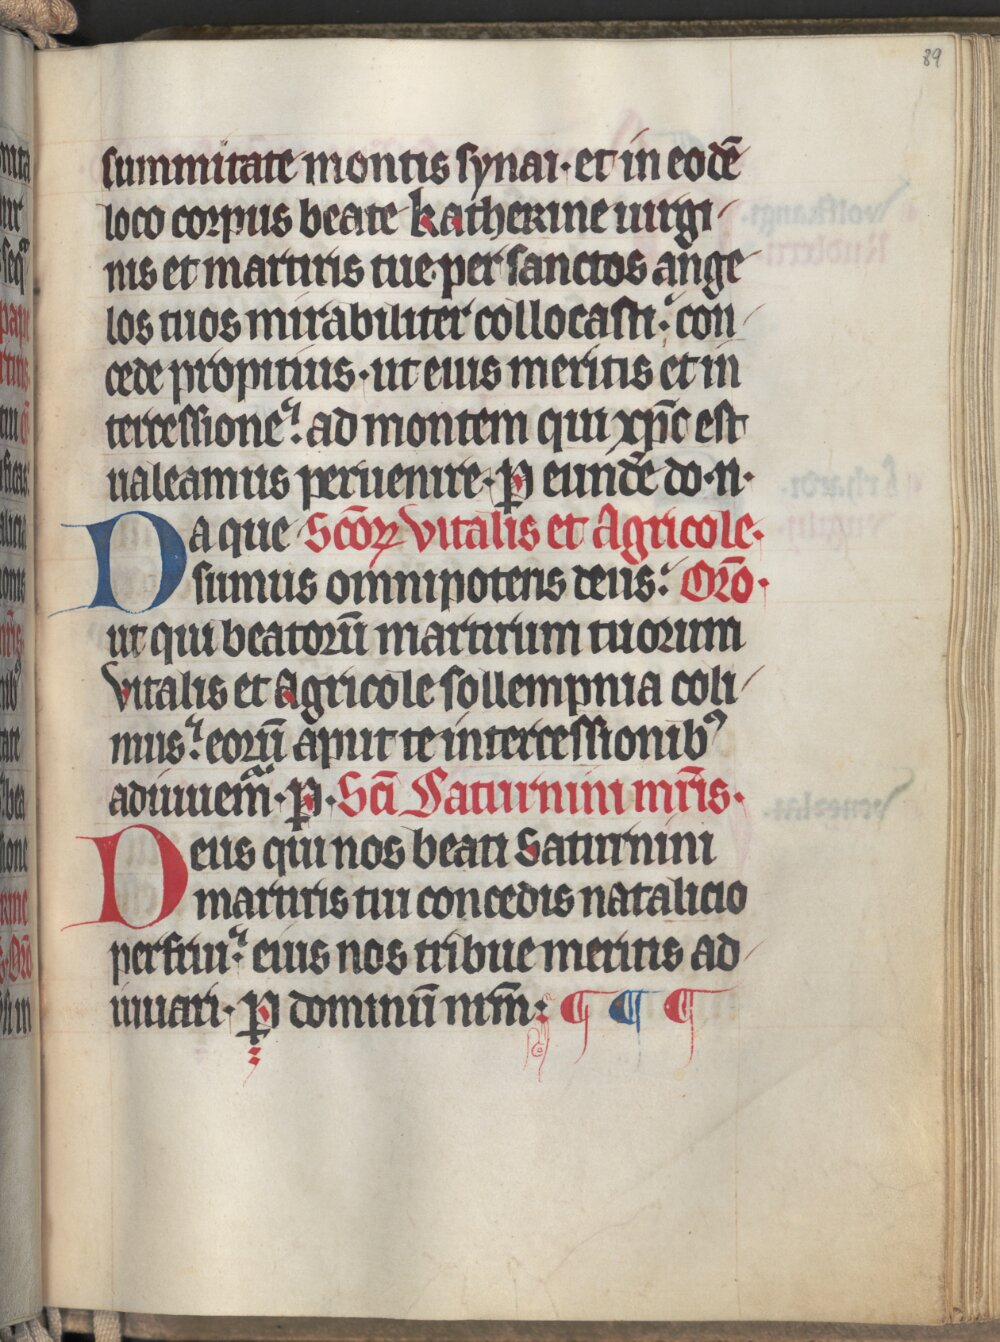 89
summitate montis synai· et in eodē
loco corpus beate katherine uirgi
nis et martiris tue per sanctos ange
los tuos mirabiliter collocasti: con
cede propitius· ut eius meritis et in
tercessione: ad montem qui xp̄c est
ualeamus peruenire· ꝑ eundē do·n·
Da que Scōꝝ Vitalis et Agricole·
sumus omnipotens deus: Orō·
ut qui beatorū martirum tuorum
Vitalis et Agricole sollempnia coli
mus: eorū aput te intercessionibꝰ
adiuuemͣ· ꝑ· Scī Saturnini mr̄is·
Deus qui nos beati Saturnini
martiris tui concedis natalicio
perfrui: eius nos tribue meritis ad
iuuari· ꝑ dominū nrm̄: ¶ ¶ ¶